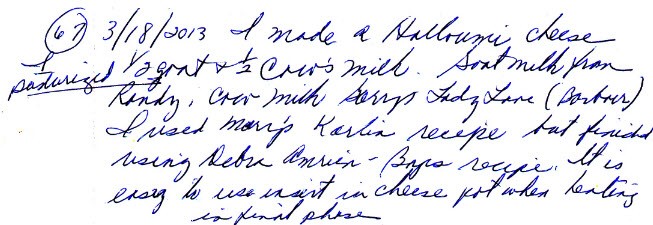 (67) 3/18/2013 I made a Halloumi cheese
I pasturized 1/2 goat & 1/2 Cow's milk. Goat milk from
Randy, Cow milk Lady Lane (Barbour)
I used Mary's Karlin recipe but finished
using Debra Amrein-Boyes recipe. It is
easy to use insert in cheese pot when heating
in final phase